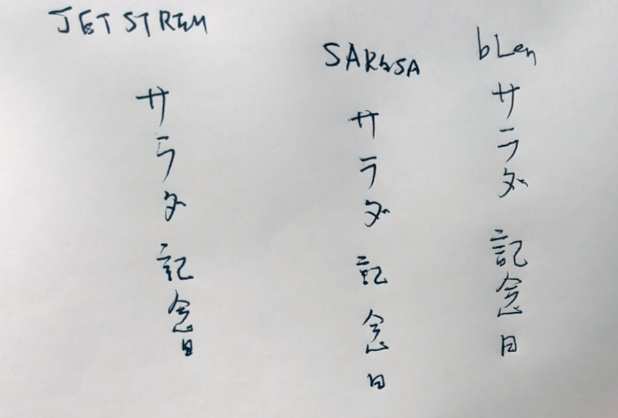 JETSTREM
サラダ記念日
SARASA
サラダ記念日
bLen
サラダ記念日